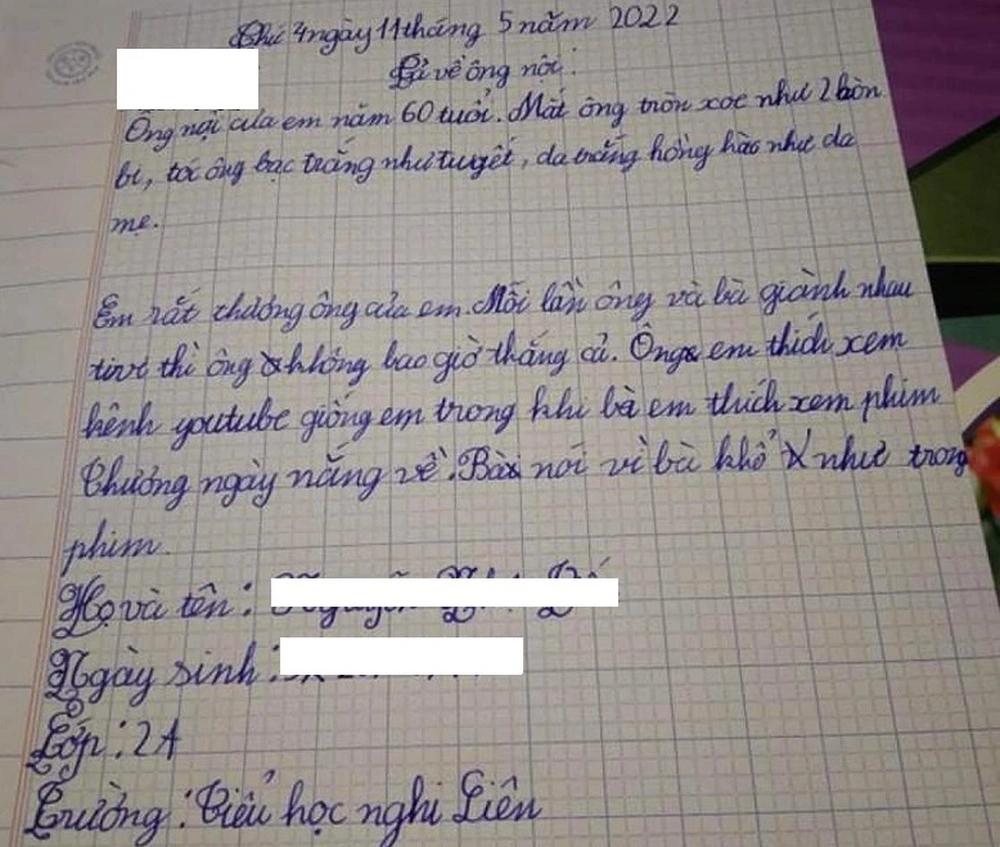 Thứ 4 ngày 11 tháng 5 năm 2022
Tả về ông nội.
Ông nội của em năm 60 tuổi. Mắt ông tròn xoe như 2 hòn
bi, tóc ông bạc trắng như tuyết, da trắng hồng hào như da
mẹ.
Em rất thương ông của em. Mỗi lần ông và bà giành nhau
tivi thì ông không bao giờ thắng cả. Ông em thích xem
kênh youtube giống em trong khi bà em thích xem phim
Thương ngày nắng về. Bà nói vì bà khổ như trong
phim.
Họ và tên:
Ngày sinh:
Lớp: 2A
Trường: Tiểu học nghi Liên